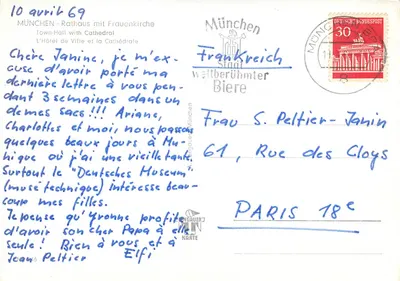 10 avril 69
MÜNCHEN - Rathaus mit Frauenkirche
Town-Hall with Cathedral
L'Hôtel de Ville et la Cathédrale
Chère Janine, je m'ex-
cuse d'avoir porté ma
dernière lettre à vous pen-
dant 3 semaines dans un
demes sacs!!! Ariane,
Charlotte et moi, nous passons
quelques beaux jours à Mu-
nique où j'ai une vieille tante.
Surtout le "Deutsches Museum"
(musé technique) intéresse beau-
coup mes filles.
Je pense qu'Yvonne profite
d'avoir son cher Papa à elle
seule! Bien à vous et à
Jean Peltier Elfi
München
Stadt
weltberühmter
Biere
MÜNCHEN
30
Frankreich
Frau S. Peltier-Janin
61, Rue des Cloys
PARIS 18e